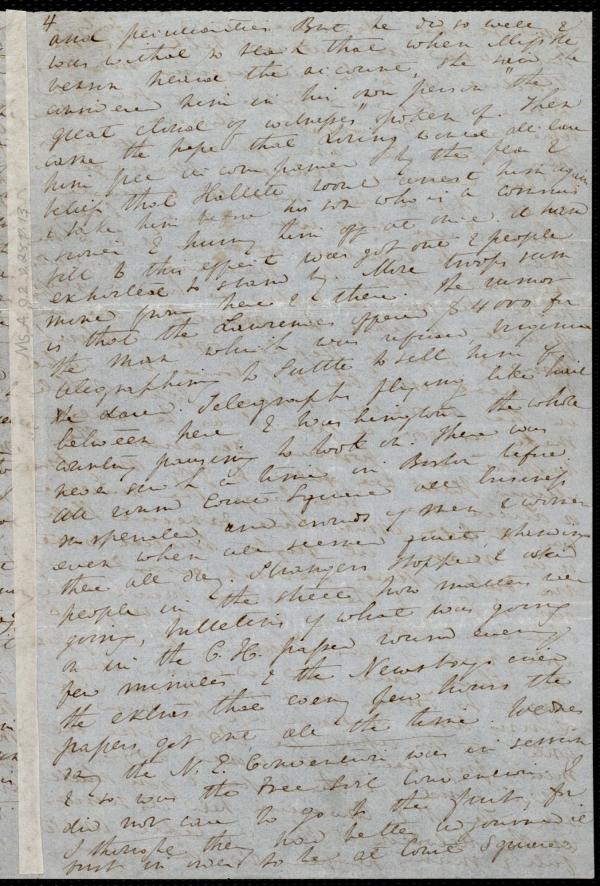 4
and peculiarities But he did so well &
was withal so that when Miss Ste
venson heard the account, she said she
considered him in his own person "the
great cloud of witnesses" spoken of. Then
came the hope that Loring would declare
him free in comparison by the fear &
belief that Hallett would arrest him again
& take him before his son who is a commis
sioner & hurry him off at once. A hand
bill to this effect was got out & people
exhorted to stand by. More troops sum
moned from here & there. The rumor
is that the Lawrences offered $4000 for
the man which was refused, Virginia
telegraphing to Suttle to sell him if
he dared. Telegraphs flying like hail
between here & Washington the whole
country pausing to look on. There was
never such a time in Boston before
All round Court Square all business
suspended, and crowds of men & women
even when all seemed quiet, standing
there all day. Strangers stopped & asked
people in the street how matters were
going, bulletins of what was going
on in the C. H. passed round every
few minutes & the Newsboys cried
the extras that every few hours the
papers got out all the time. Wednes
day the N. E. Convention was in session
& so was the Free Soil Convention. I
did not care to go to the first, for
I thought they had better adjourned it
just in order to be at Court Square
MS.A.9.2